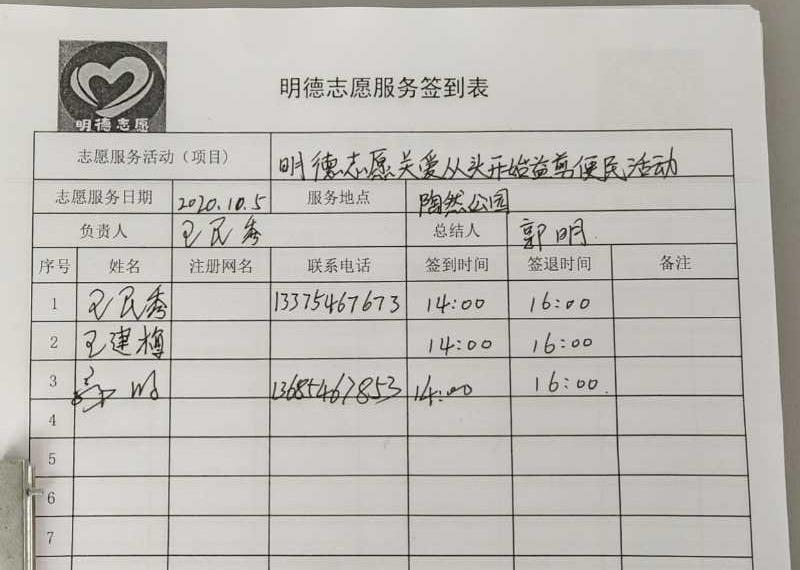 明德志愿
明德志愿服务签到表
志愿服务活动（项目） 明德志愿关爱从头开始益剪便民活动
志愿服务日期 2020.10.5 服务地点 陶然公园
负责人 王民秀 总结人 郭明
序号 姓名 注册网名 联系电话 签到时间 签退时间 备注
1 王民秀 13375467673 14:00 16:00
2 王建梅 14:00 16:00
3 13685467853 14:00 16:00
4
5
6
7